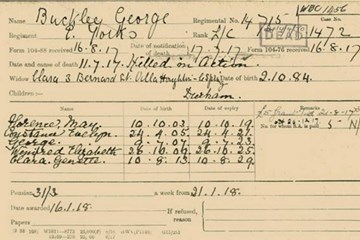 WBC 1456
Name Buckley George Regimental No. 14715 Case No.
Regiment E. Yorks Rank L/C 1472
Form 104-88 received 16.8.17 Date of notification of death 17.7.17 Form 104-76 received 16.8.17
Date and cause of death 11.7.17 Killed in Action
Widow Clara 3 Bernard St. Houghton-le-Spring 2.10.84
Children:— Durham
Name Date of birth Date of expiry Remarks
Florence May. 10.10.03 10.10.19
Constance Evelyn. 24.4.05 24.4.21
George. 9.7.07 9.7.23
Winifred Elizabeth 26.10.09 26.10.25
Clara Genetta. 10.8.13 10.8.29
Pension 31/3 a week from 21.1.18.
Date awarded 16.1.18. If refused, reason
Papers